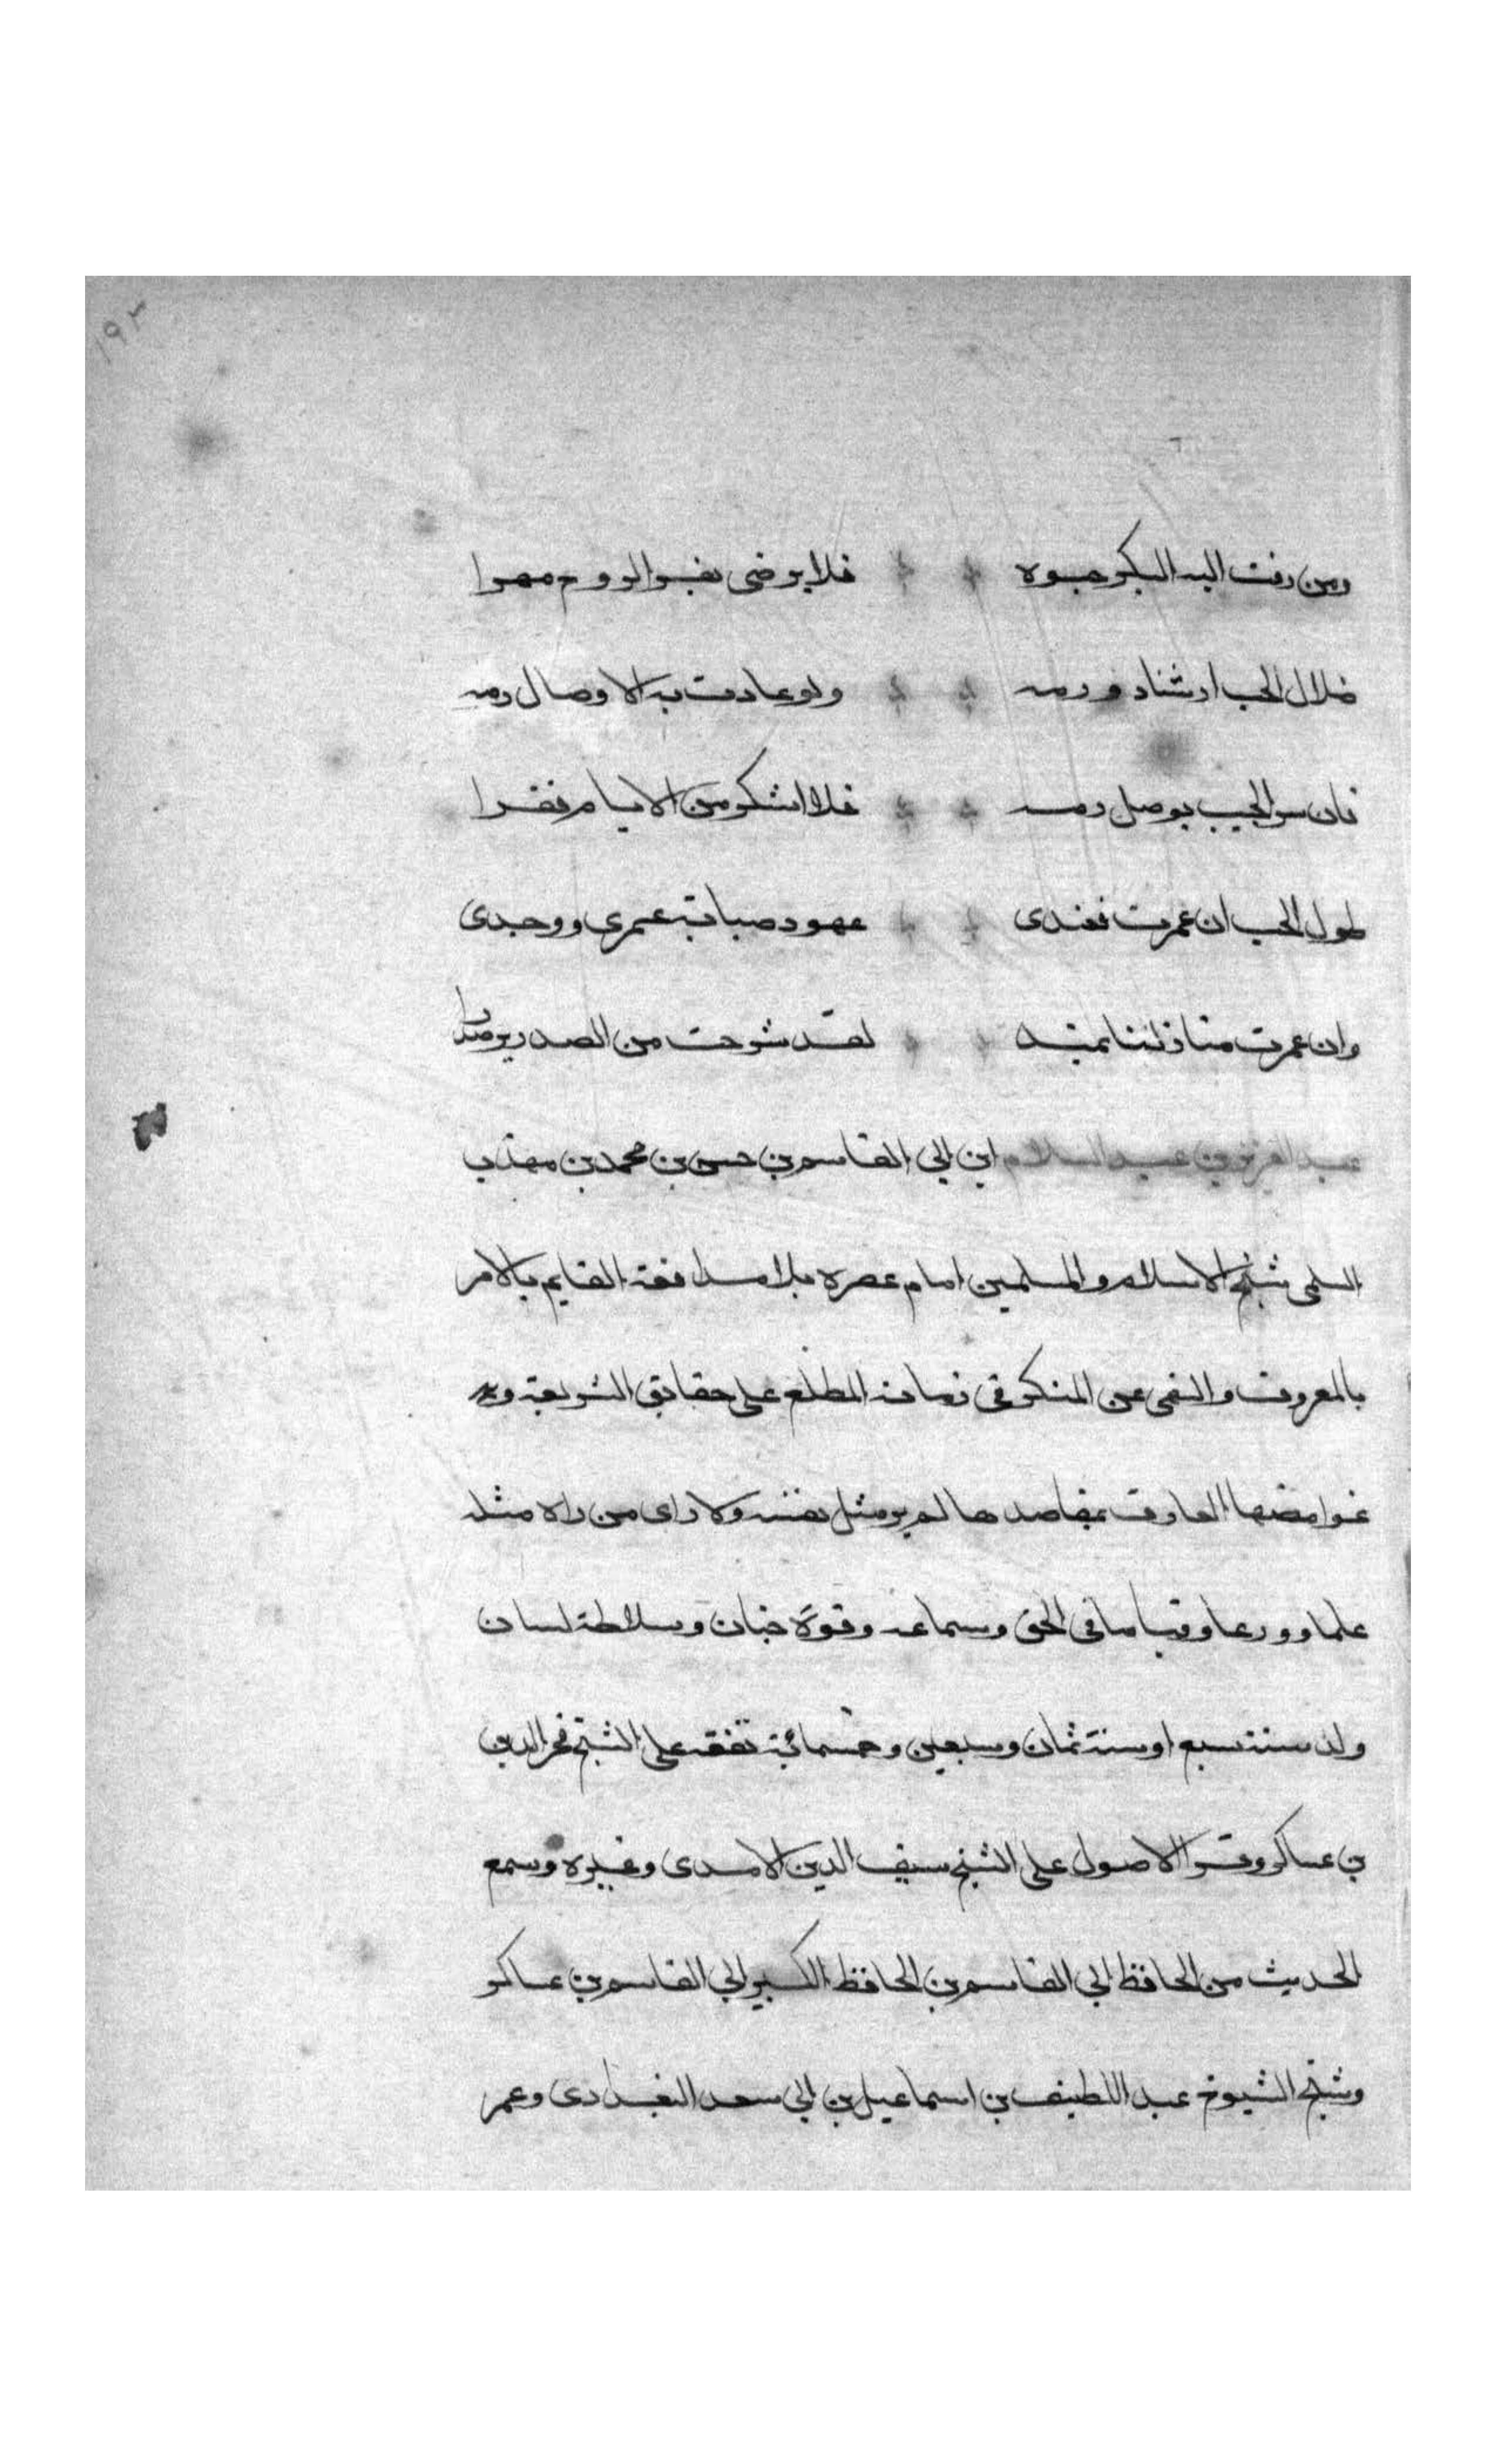 ١٩٣
ومن زفت اليه البكر حبوه فلا يرضى بغير الروح مهرا
ضلال الحب ارشاد ورمه ولو عادت به الاوصال رمه
فان سر الحبيب بوصل رمه فلا اشكو من الايام فقرا
طول الحب ان عمرت فعندى عهود صبابة عمرى ووجدى
وان عمرت منازلنا لقد شرحت من الصدر
عبد العزيز بن عبد السلام ابن ابي القاسم بن حسن بن محمد بن مهذب
السلمى شيخ الاسلام والمسلمين امام عصره بلا مدافعة القايم بالامر
بالمعروف والنهى عن المنكر فى زمانه المطلع على حقايق الشريعة و
غوامضها العارف بمقاصدها لم ير مثل نفسه ولا راى من راه مثله
علما وورعا وقياما فى الحق وسماعه وقوة جنان وسلاطة لسان
ولد سنة سبع او سنة ثمان وسبعين وخمسمائة تفقه على الشيخ فخر الدين
بن عساكر وقرا الاصول على الشيخ سيف الدين الامدى وغيره وسمع
الحديث من الحافظ ابي القاسم بن الحافظ الكبير ابي القاسم بن عساكر
وشيخ الشيوخ عبد اللطيف بن اسماعيل بن ابي سعد البغدادى وعمر